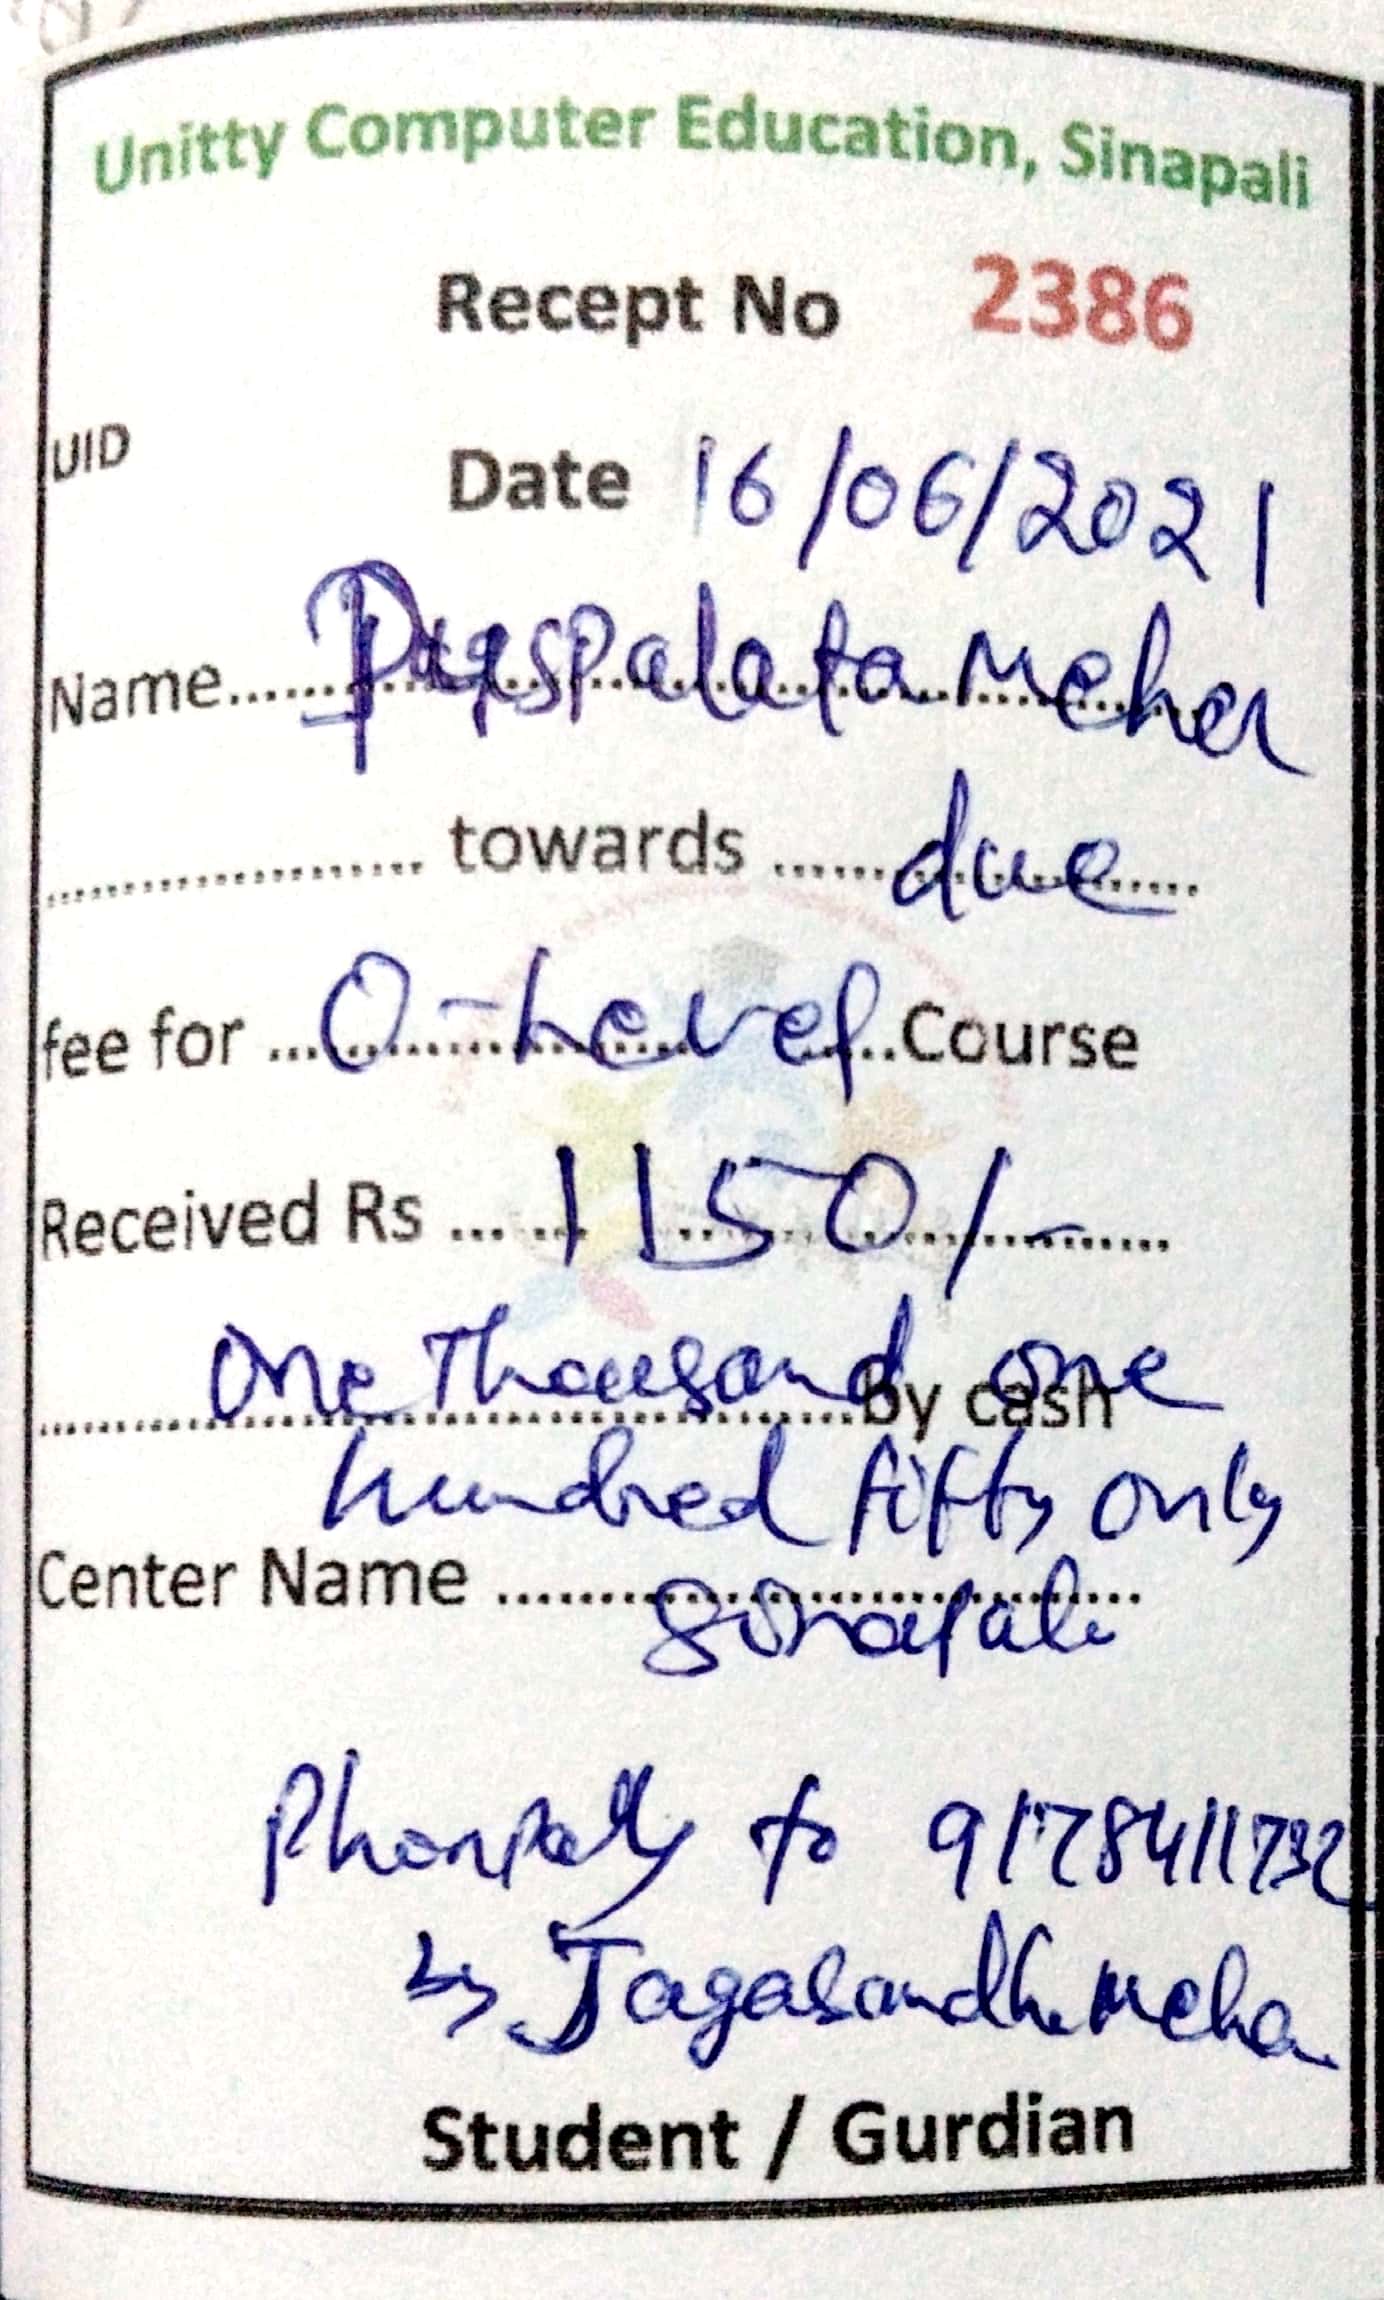 Unitty Computer Education, Sinapali
Recept No 2386
UID Date 16/06/2021
Name...... Puspalata Meher
.................... towards ...... due ......
fee for ... O-Level ...Course
Received Rs ... 1150/- ......
One Thousand one by cash
hundred fifty only
Center Name ..............................
Sinapali
to 9178411732
by Jagabandhu Meher
Student / Gurdian